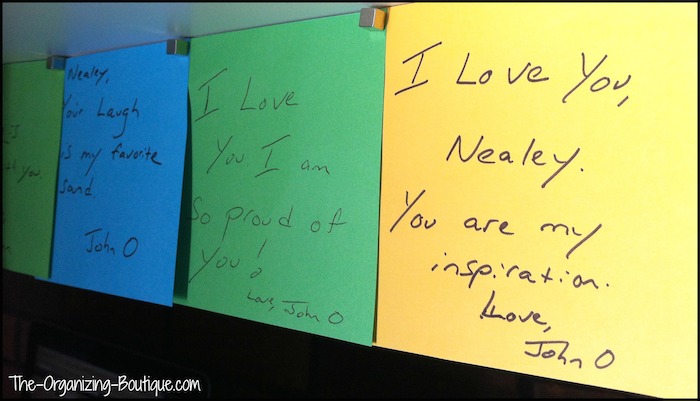 I
th you.
Nealey,
Your Laugh
is my favorite
Sand.
John O
I Love
You I am
So proud of
You!
Love, John O
I Love You,
Nealey.
You are my
inspiration.
Love,
John O
The-Organizing-Boutique.com